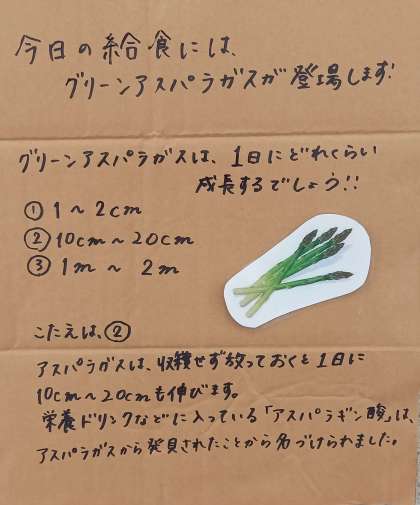 今日の給食には、
グリーンアスパラガスが登場します!
グリーンアスパラガスは、1日にどれくらい
成長するでしょう!!
① 1~2cm
② 10cm~20cm
③ 1m ~ 2m
こたえは、②
アスパラガスは、収穫せず放っておくと1日に
10cm~20cmも伸びます。
栄養ドリンクなどに入っている「アスパラギン酸」は、
アスパラガスから発見されたことから名づけられました。